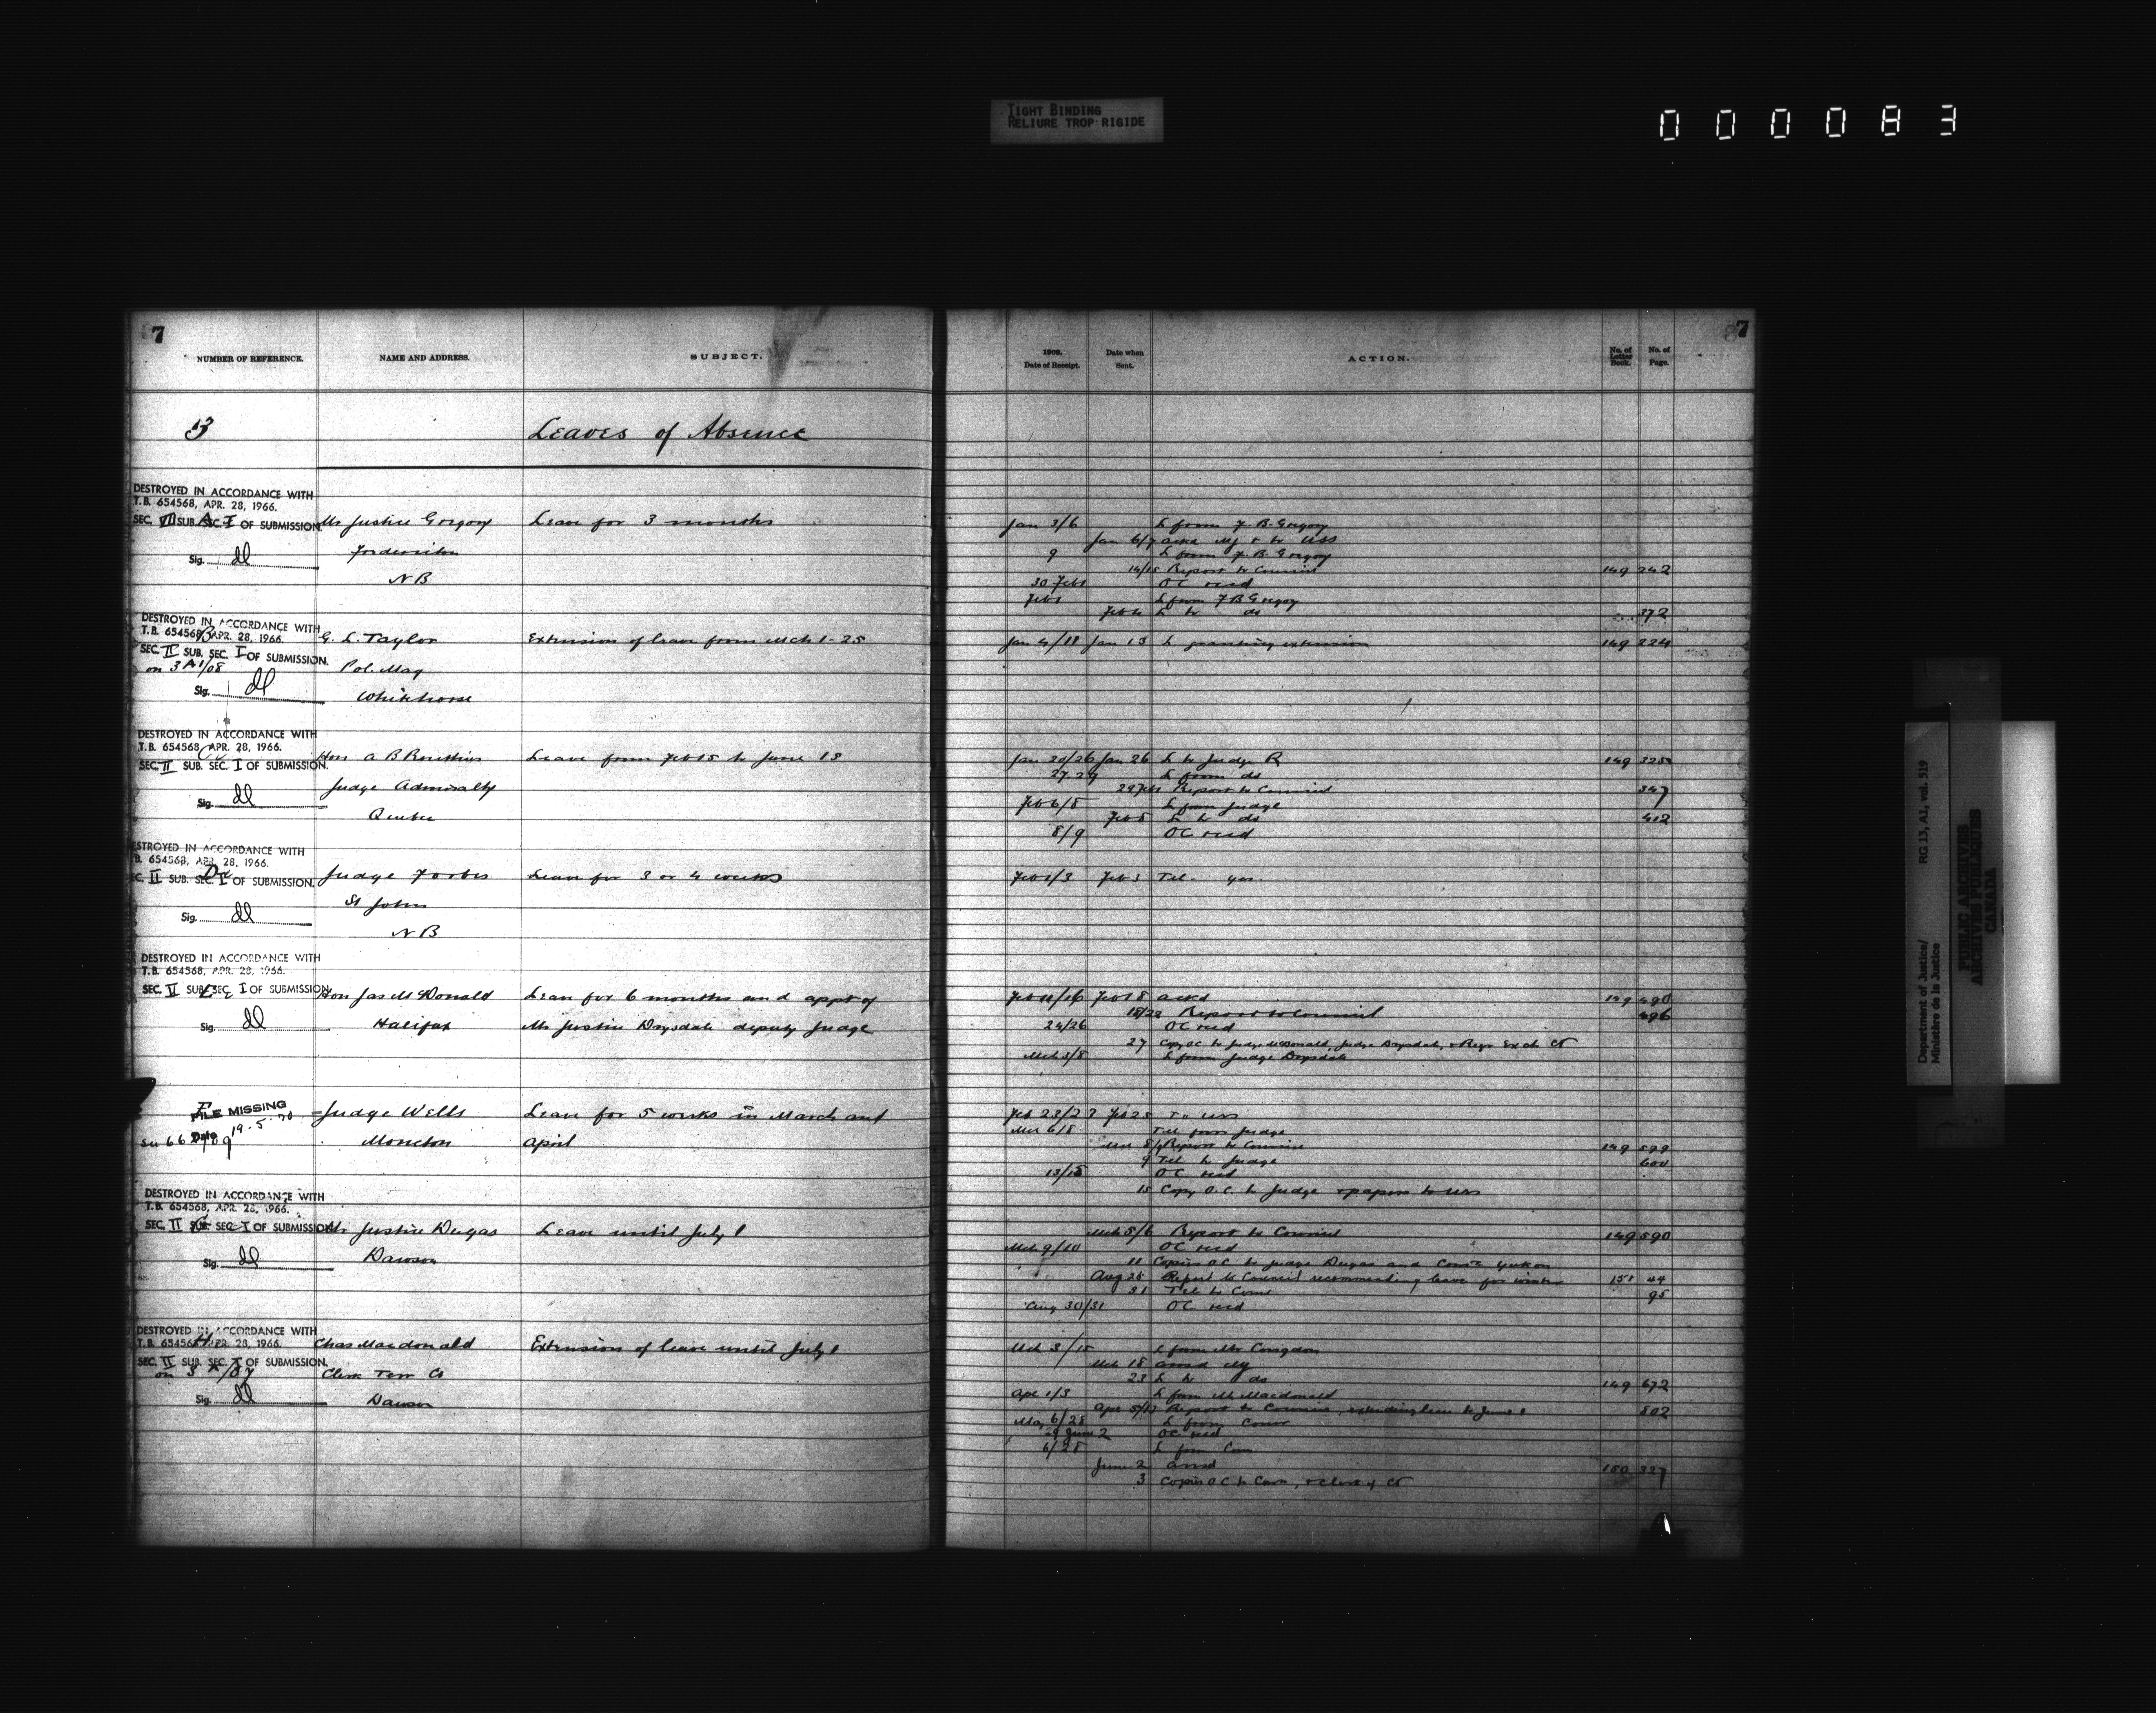 TIGHT BINDING
RELIURE TROP RIGIDE
000083
7
NUMBER OF REFERENCE. NAME AND ADDRESS. SUBJECT.
3 Leaves of Absence
DESTROYED IN ACCORDANCE WITH
T.B. 654568, APR. 28, 1966.
SEC. VII SUB. SEC. I OF SUBMISSION.
A
Mr Justice Gregory Leave for 3 months
Sig. dl
Fredericton
N B
DESTROYED IN ACCORDANCE WITH
T.B. 654568, APR. 28, 1966.
B
G. L. Taylor Extension of leave from Mch 1-25
SEC. II SUB. SEC. I OF SUBMISSION.
on 3 A1/08
Pol. Mag
Sig. dl
Whitehorse
DESTROYED IN ACCORDANCE WITH
T.B. 654568, APR. 28, 1966.
C
Hon A B Routhier Leave from Feb 15 to June 15
SEC. II SUB. SEC. I OF SUBMISSION.
Judge Admiralty
Sig. dl
Quebec
DESTROYED IN ACCORDANCE WITH
T.B. 654568, APR. 28, 1966.
SEC. II SUB. SEC. I OF SUBMISSION.
D
Judge Forbes Leave for 3 or 4 weeks
St John
Sig. dl
N B
DESTROYED IN ACCORDANCE WITH
T.B. 654568, APR. 28, 1966.
SEC. II SUB. SEC. I OF SUBMISSION.
E
Hon Jas McDonald Leave for 6 months and appt of
Sig. dl
Halifax Mr Justice Drysdale deputy Judge
F
FILE MISSING
Date 19.5.70
Judge Wells Leave for 5 weeks in March and
Moncton April
DESTROYED IN ACCORDANCE WITH
T.B. 654568, APR. 28, 1966.
SEC. II SUB. SEC. I OF SUBMISSION.
G
Mr Justice Dugas Leave until July 1
Sig. dl
Dawson
DESTROYED IN ACCORDANCE WITH
T.B. 654568, APR. 28, 1966.
H
Chas Macdonald Extension of leave until July 1
SEC. II SUB. SEC. I OF SUBMISSION.
Clerk Terr Ct
Sig. dl
Dawson
7
1909. Date of Receipt. Date when Sent. ACTION. No. of Letter Book. No. of Page.
Jan 3/6 L from F. B. Gregory
Jan 6/7 ackd
9 L from F. B. Gregory
14/15 Report to Council 149 242
30 Feb 1 OC recd
Feb 1 L from F B Gregory
L to do 372
Jan 4/11 Jan 13 L granting extension 149 224
Jan 20/26 Jan 26 L to Judge R 149 325
27.29 L from do
29 Feb 1 Report to Council 347
Feb 6/8 L from Judge
Feb 8 L to do 412
8/9 OC recd
Feb 1/3 Feb 3 Tel - yes
Feb 11/16 Feb 18 ackd 149 490
18/23 Report to Council 496
24/26 OC recd
27 Copy OC to Judge McDonald, Judge Drysdale, & Regr Exch Ct
Mch 3/8 L from Judge Drysdale
Feb 23/27 Feb 25 To USS
Mch 6/8 Tel from Judge
Report to Council 149 599
9 Tel to Judge 600
13/15 OC recd
15 Copy O.C. to Judge & papers to USS
Mch 5/6 Report to Council 149 590
Mch 9/10 OC recd
11 Copies OC to Judge Dugas and Comr Yukon
Aug 25 Report to Council recommending leave for winter 151 44
31 Tel to Comr 95
Aug 30/31 OC recd
Mch 3/15 L from Mr Congdon
Mch 18 ansd
23 L to do 149 672
Apr 1/3 L from Mr Macdonald
Apr 5/13 Report to Council, extending leave to June 1 802
May 6/28 L from Comr
29 June 2 OC recd
6/28 L from Com
June 2 ansd 150 327
3 Copies OC to Com, & Clerk of Ct
Department of Justice/ RG 13, A1, vol. 519
Ministère de la Justice
PUBLIC ARCHIVES
ARCHIVES PUBLIQUES
CANADA